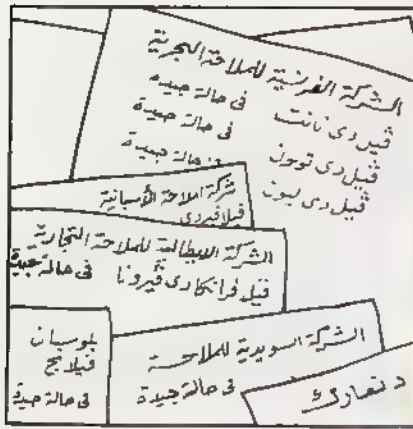 الشركة الفرنسية للملاحة البحرية
ڤيل دى نانت فى حالة جيدة
ڤيل دى تولون فى حالة جيدة
ڤيل دى ليون فى حالة جيدة
شركة الملاحة الأسبانية
ڤيلا فيردى
الشركة الايطالية للملاحة التجارية
ڤيل فرانكا دى ڤيرونا فى حالة جيدة
الشركة السويدية للملاحة
فى حالة جيدة
ڤيلانج
فى حالة جيدة
دنمارك